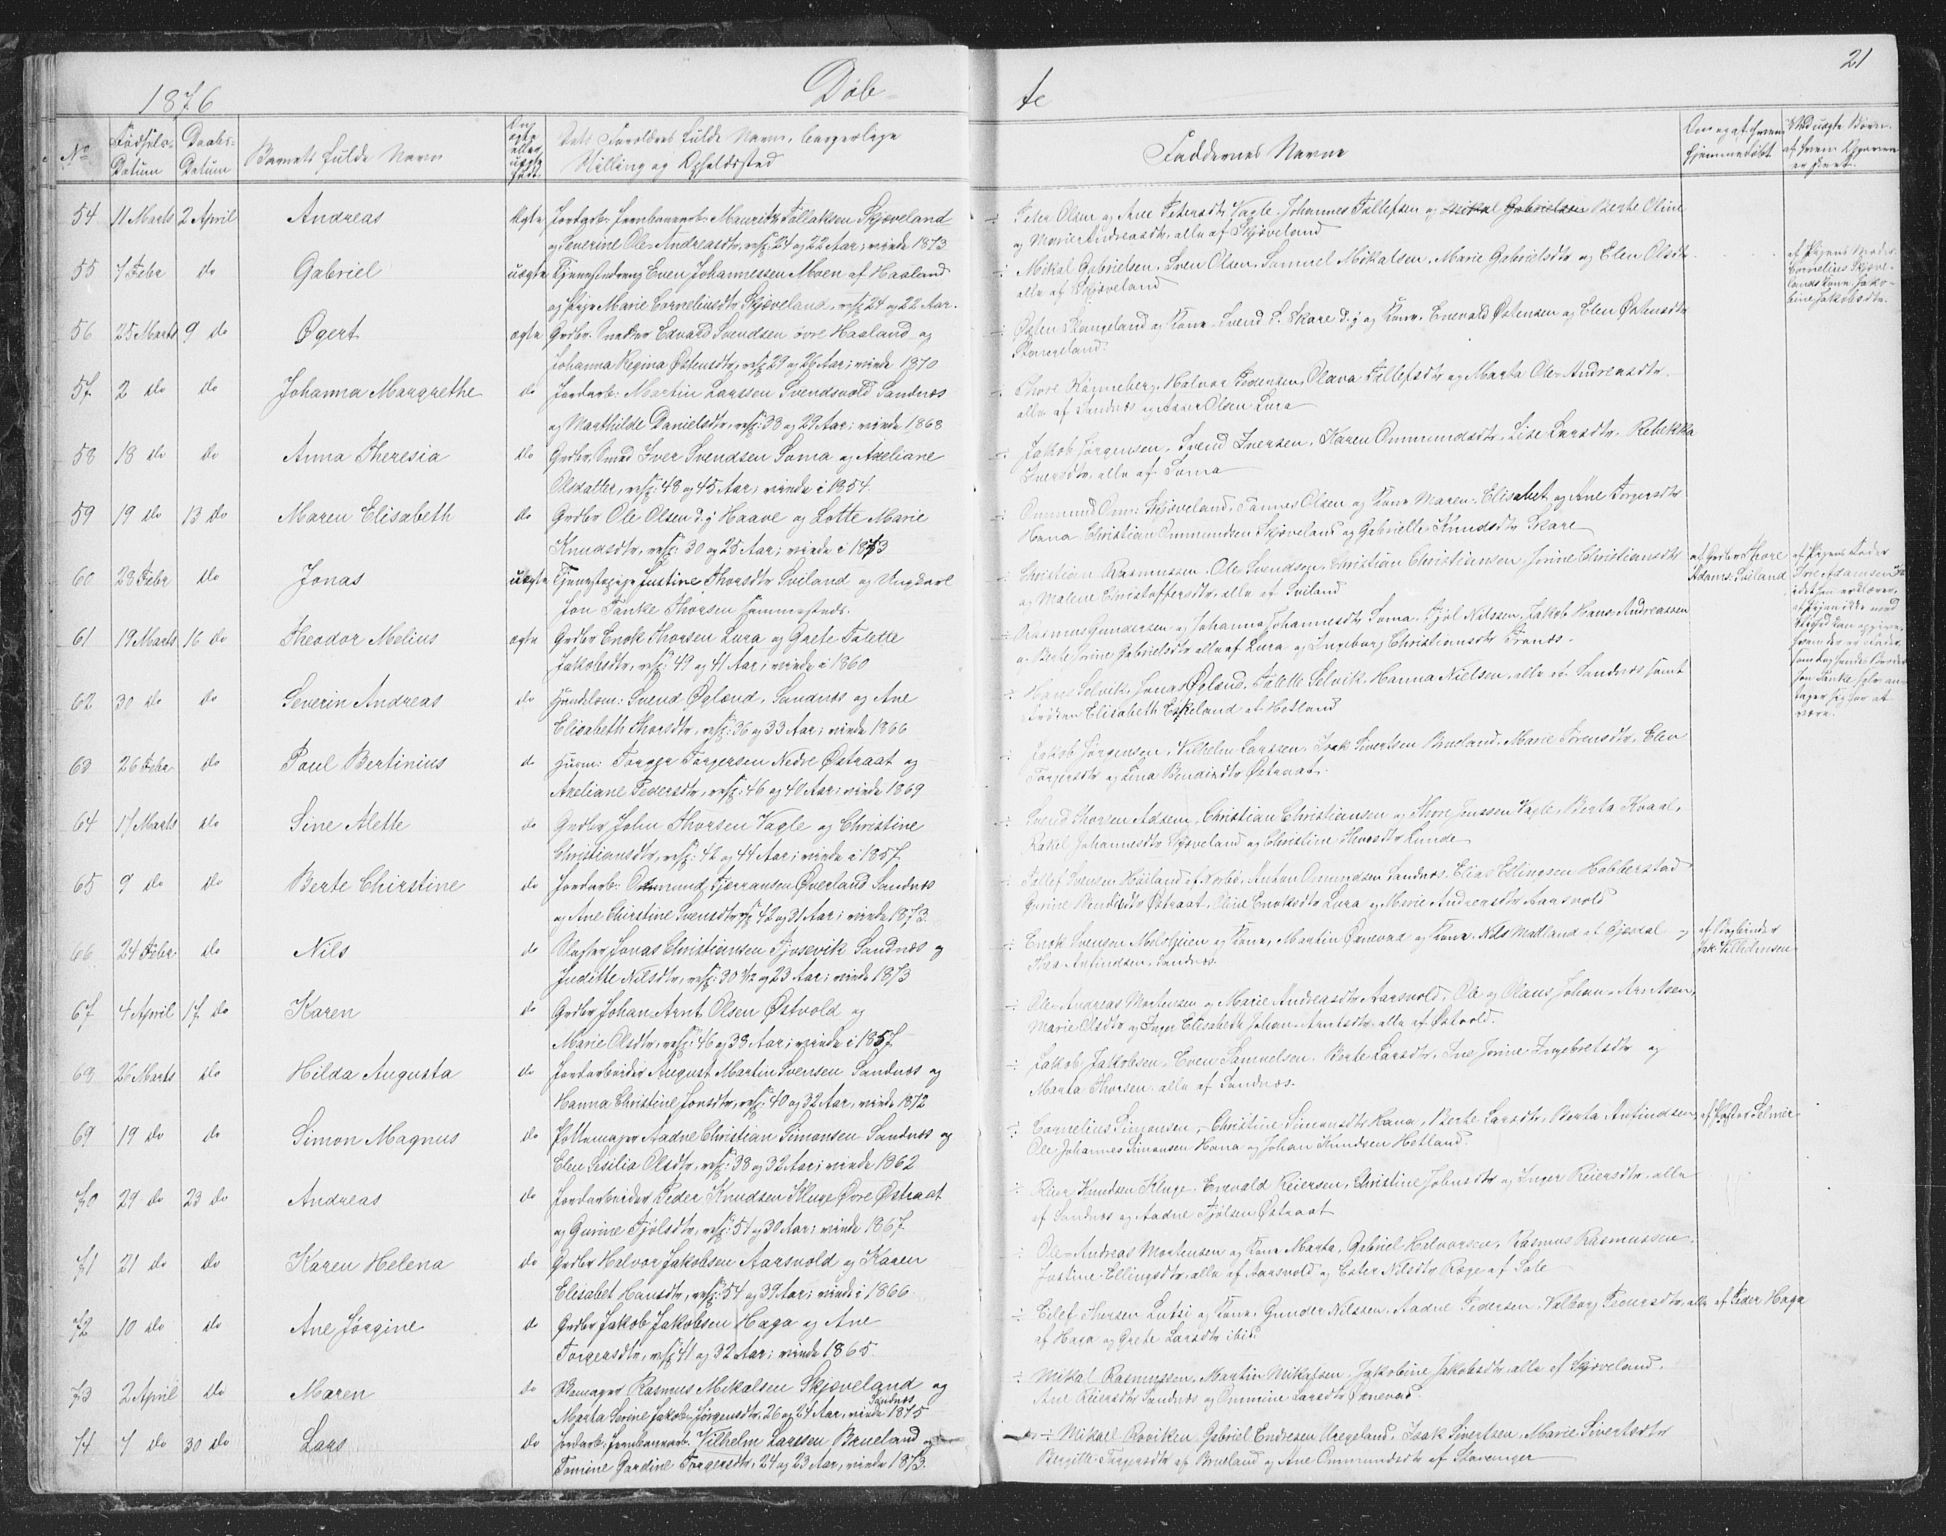 21
1876 Døbte
No
Fødsels-Datum
Daabs-Datum
Barnets fulde Navn
Dets Forældres fulde Navn, borgerlige
Stilling og Opholdssted
Faddernes Navne
54 11 Marts 2 April Andreas Ægte Jordarb: Jernbanearb: Mauritz Tollaksen Skjæveland
og Severine Ole-Andreasdtr, resp: 24 og 22 Aar; viede 1873
÷ Peter Olsen og Ane Petersdtr Vagle, Johannes Tollefsen og Mikal Gabrielsen Berte Oline
og Marie Andreasdtr, alle af Skjæveland
55 7 Febr do Gabriel uægte Tjenestedreng Even Johannessen Moen af Haaland
og Pige Marie Corneliusdtr Skjæveland, resp: 24 og 22 Aar.
÷ Mikal Gabrielsen, Sven Olsen, Samuel Mikalsen, Marie Gabrielsdtr og Elen Olsdtr
alle af Skjæveland
af Pigens Moder
Cornelius Skjæve-
lands Kone Jako-
bine Jakobsdtr.
56 25 Marts 9 do Øgert ægte Grdbr. Snedker Edvard Svendsen øvre Haaland og
Johanna Regina Østensdtr, resp: 29 og 26 Aar; viede 1870
÷ Østen Stangeland og Kone, Svend S. Skare d.y og Kone, Enevald Østensen og Elen Østensdtr
Stangeland.
57 2 do do Johanna Margrethe do Jordarb: Martin Larssen Svendsvold Sandnæs
og Marthilde Danielsdtr, resp: 33 og 29 Aar; viede 1868
÷ Thore Rønneberg, Halvor Pedersen, Olava Tollefsdtr og Marta Ole-Andreasdtr
alle af Sandnæs og Olsen Lura
58 18 do do Anna Theresia do Grdbr. Smed Iver Svendsen Soma og Axeliane
Olsdatter, resp: 48 og 45 Aar; viede i 1854.
÷ Jakob Jørgensen, Svend Iversen, Karen Ommundsdtr, Lise Larsdtr, Rebekka
Iversdtr, alle af Soma
59 19 do 13 do Maren Elisabeth do Grdbr Ole Olsen d.y Haave og Lotte Marie
Knudsdtr, resp: 30 og 25 Aar; viede i 1873
÷ Ommund Skjæveland, Tønnes Olsen og Kone Maren-Elisabet og Ane Torgersdtr
Hana, Christian Ommundsen Skjæveland og Gabrielle Knudsdtr Skare
60 28 Febr do Jonas uægte Tjenestepige Justine Thorsdtr Sviland og Ungkarl
Jon Tanke Thorsen sammesteds.
÷ Christian Rasmussen, Ole Svendsen, Christian Christiansen, Jorine Christiansdtr
og Malene Christoffersdtr, alle af Sviland
af Grdbr Thore
Adams: Sviland
af Pigens Fader
61 19 Marts 16 do Theodor Melius ægte Grdbr Enok Thorsen Lura og Grete Talette
Jakobsdtr, resp: 49 og 41 Aar; viede i 1860
÷ Rasmus Gundersen og Johanna Johannesdtr Soma, Tjøl Nilssen, Jakob Hans-Andreassen
og Berte Jorine Gabrielsdtr alle af Lura og Ingeborg Christiansdtr Tranæs.
62 30 do do Severin Andreas do Handelsm: Svend Øglænd, Sandnæs og Ane
Elisabeth Thorsdtr, resp: 36 og 33 Aar; viede 1866
÷ Hans Selvik, Jonas Øglænd, Talette Selvik, Hanna Nielsen, alle af Sandnæs samt
Frøken Elisabeth Eskeland af Hetland
63 26 Febr do Paul Bertinius do Husm: Torger Torgersen Nedre Østraat og
Axeliane Pedersdtr, resp: 46 og 40 Aar; viede 1869
÷ Jakob Jørgensen, Vilhelm Larssen, Isak Sivertsen Brueland, Marie Sørensdtr, Elen
Torgersdtr og Sina Bendixdtr Østraat.
64 17 Marts do Sine Alette do Grdbr John Thorsen Vagle og Christine
Christiansdtr, resp: 42 og 44 Aar; viede i 1857
÷ Svend Thorsen Adsem, Christian Christiansen og Thore Jonssen Vagle, Berta Kvaal,
Rakel Johannesdtr Skjæveland og Christine Thorsdtr Lunde
65 9 do do Berte Chirstine do Jordarb: Osmund Tjerransen Øverland Sandnæs
og Ane Christine Svensdtr, resp: 42 og 31 Aar; viede 1873
÷ Tollef Svensen Høiland af Norbø, Anton Ommundsen Sandnæs, Elias Ellingsen Hobberstad
Gurine Bendixdtr Østraat, Oline Enoksdtr Lura og Marie Andreasdtr Aarsvold
66 24 Febr do Nils do Slagter Jonas Christiansen Gjøsevik Sandnæs og
Judette Nilsdtr, resp: 30 1/2 og 23 Aar; viede 1873
÷ Enok Svensen Moldheien og Kone, Martin Ønevad og Kone, Nils Madland af Gjesdal og
Thea Antindsen, Sandnæs.
af Bogbinder
Jak: Vilhelmsen
67 4 April 17 do Karen do Grdbr Johan Arnt Olsen Østvold og
Marie Olsdtr, resp: 46 og 38 Aar; viede i 1857
÷ Ole-Andreas Mortensen og Marie Andreasdtr Aarsvold, Ole og Olaus Johan-Arntsen,
Marie Olsdtr og Inger Elisabeth Johan-Arntsdtr, alle af Østvold.
68 26 Marts do Hilda Augusta do Jordarbeider August Martin Svensen Sandnæs og
Hanna Christine Jonsdtr, resp: 40 og 32 Aar, viede 1872
÷ Jakob Jakobsen, Even Samuelsen, Berte Larsdtr, Ine Jorine Ingebretsdtr og
Marta Thorsen, alle af Sandnæs.
69 19 do do Simon Magnus do Pottemager Aadne Christian Simonsen Sandnæs og
Elen Sesilia Olsdtr, resp: 38 og 32 Aar; viede 1862
÷ Cornelius Simonsen, Christine Simonsdtr Hana, Berte Larsdtr, Berta Antindsen,
Ole-Johannes Simonsen Hana og Johan Knudsen Hetland.
af Pastor Selmer
70 29 do 23 do Andreas do Jordarbeider Peder Knudsen Kluge Øvre Østraat
og Gurine Tjølsdtr, resp: 51 og 30 Aar; viede 1867
÷ Reier Knudsen Kluge, Enevald Reiersen, Christine Johnsdtr og Inger Reiersdtr, alle
af Sandnæs og Aadne Tjølsen Østraat
71 21 do do Karen Helena do Grdbr Halvor Jakobsen Aarsvold og Karen
Elisabet Hansdtr, resp: 54 og 39 Aar; viede i 1866
÷ Ole-Andreas Mortensen og Kone Marta, Gabriel Halvorsen, Rasmus Rasmussen,
Justine Ellingsdtr, alle af Aarsvold og Ester Nilsdtr Ræge af Sole
72 10 do do Ane Jørgine do Grdbr Jakob Jakobsen Haga og Ane
Torgersdtr, resp: 41 og 32 Aar; viede 1865.
÷ Eilef Thorsen Lutsi og Kone, Gunder Nilssen, Aadne Pedersen, Valborg Pedersdtr, alle
af Haga og Grete Larsdtr ibid.
af Peder Haga
73 2 April do Maren do Blæmager Rasmus Mikalsen Skjæveland og
Marta Serine Jakob-Jørgensdtr Sandnæs, 26 og 24 Aar, viede 1875
÷ Mikal Rasmussen, Martin Mikalsen, Jakobine Jakobsdtr, alle af Skjæveland,
Ane Reiersdtr Sandnæs og Ommine Larsdtr Ønevad.
74 7 do 30 do Lars do Jordarb: Jernbanearb: Vilhelm Larssen Brueland og
Tomine Gurdine Torgersdtr, 24 og 23 Aar, viede 1873.
÷ Mikael Roviken, Gabriel Endresen Ueland, Isak Sivertsen, Marie Sivertsdtr
Bergitte Torgersdtr af Brueland og Ane Ommundsdtr af Stavanger